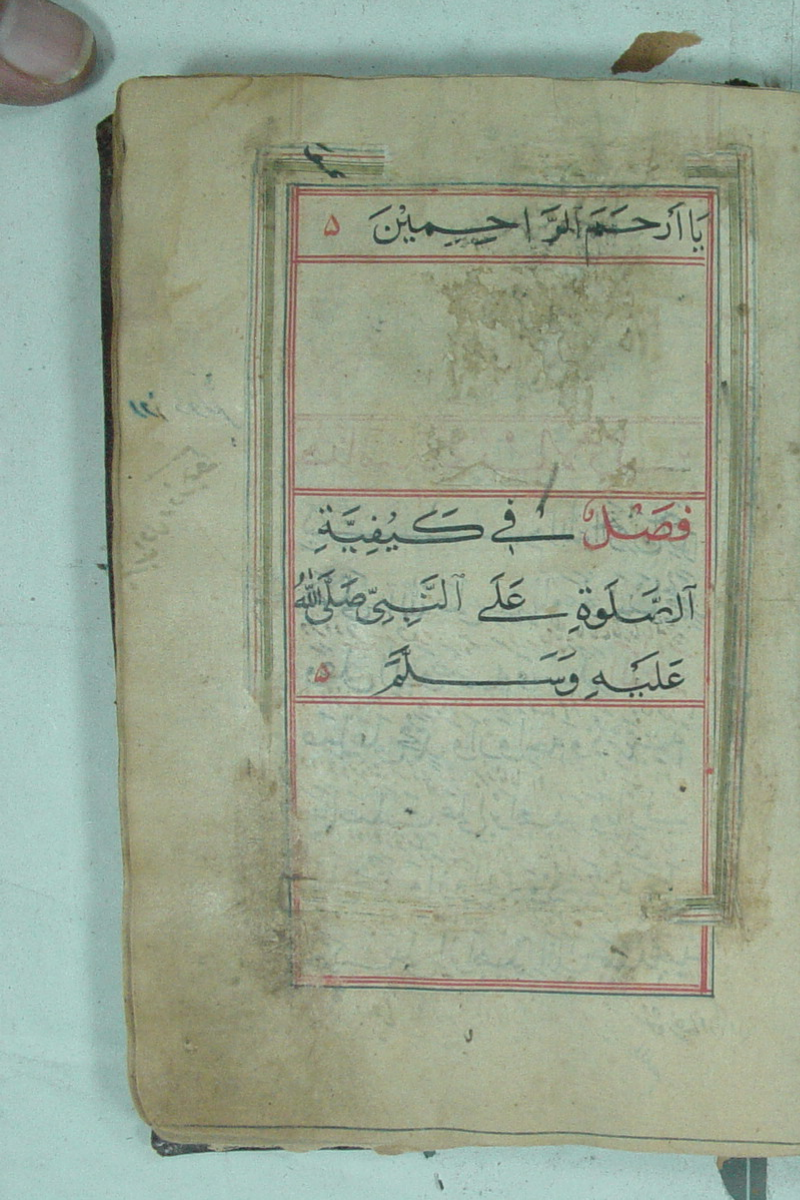 يَا اَرْحَمَ الرَّاحِمِيْنَ ۵
فَصْلٌ فِي كَيْفِيَّةِ
الصَّلَوةِ عَلَى النَّبِيِّ صَلَّى اللهُ
عَلَيْهِ وَسَلَّمَ ۵